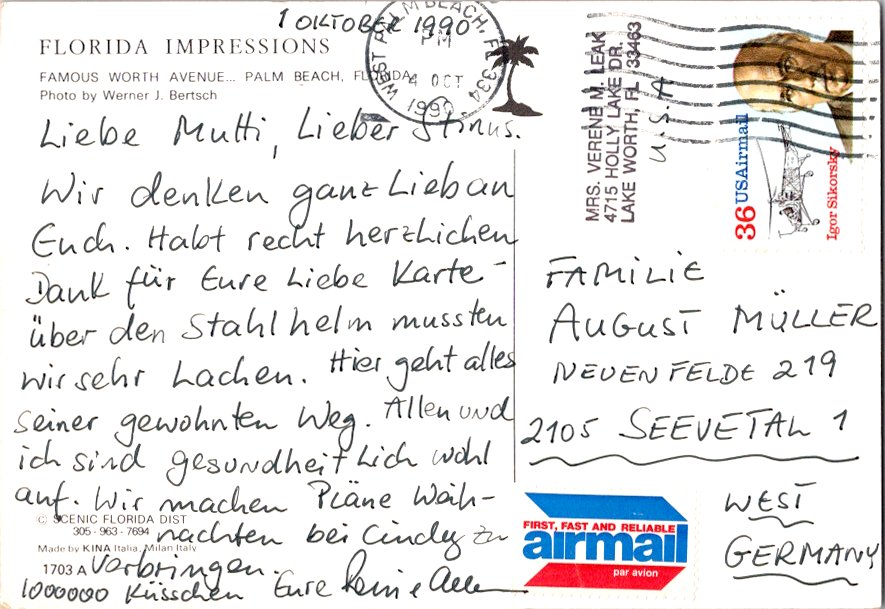 1 OKTOBER 1990
FLORIDA IMPRESSIONS
FAMOUS WORTH AVENUE... PALM BEACH, FLORIDA
Photo by Werner J. Bertsch
WEST PALM BEACH, FL 334
PM
4 OCT
1990
MRS. VERENE M. LEAK
4715 HOLLY LAKE DR.
LAKE WORTH, FL 33463
U.S.A
36 USAirmail
Igor Sikorsky
Liebe Mutti, Lieber Stinus.
Wir denken ganz Lieb an
Euch. Habt recht herzlichen
Dank für Eure Liebe Karte -
über den Stahlhelm mussten
wir sehr Lachen. Hier geht alles
seiner gewohnten Weg. Allen und
ich sind gesundheitlich wohl
auf. Wir machen Pläne Weih-
nachten bei Cindy zu
verbringen.
1000000 Küsschen Eure Allen
© SCENIC FLORIDA DIST
305 - 963 - 7694
Made by KINA Italia, Milan Italy
1703 A
FAMILIE
AUGUST MÜLLER
NEUENFELDE 219
2105 SEEVETAL 1
WEST
GERMANY
FIRST, FAST AND RELIABLE
airmail
par avion